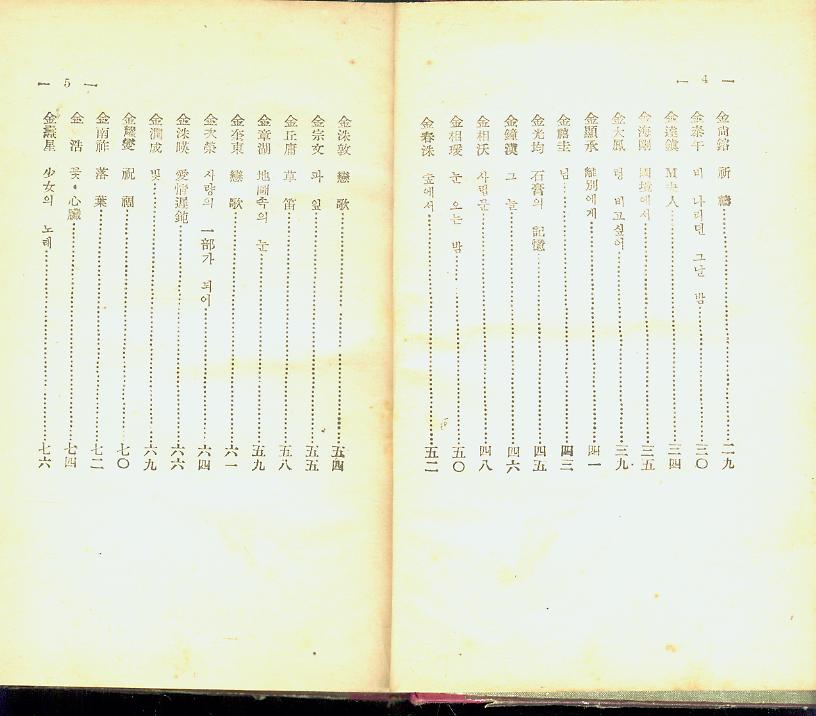 — 4 —
金尙鎔 祈 禱 二九
金泰午 비 나리던 그날 밤 三〇
金達鎭 M夫人 三四
金海剛 國境에서 三五
金大鳳 텅 비고싶어 三九
金顯承 離別에게 四一
金禧圭 님 四三
金光均 石膏의 記憶 四五
金鐘漢 그 늘 四六
金相沃 四八
金相瑗 눈 오는 밤 五〇
金春洙 에서 五二
— 5 —
金洙敦 戀 歌 五四
金宗文 파 잎 五五
金丘庸 草 笛 五八
金章湖 地圖속의 눈 五九
金奎東 戀 歌 六一
金次榮 사랑의 一部가 되어 六四
金洙暎 愛情遲鈍 六六
金潤成 빛 六九
金耀燮 祝 福 七〇
金南祚 落 葉 七二
金 浩 꽃・心臟 七四
星 少女의 노래 七六